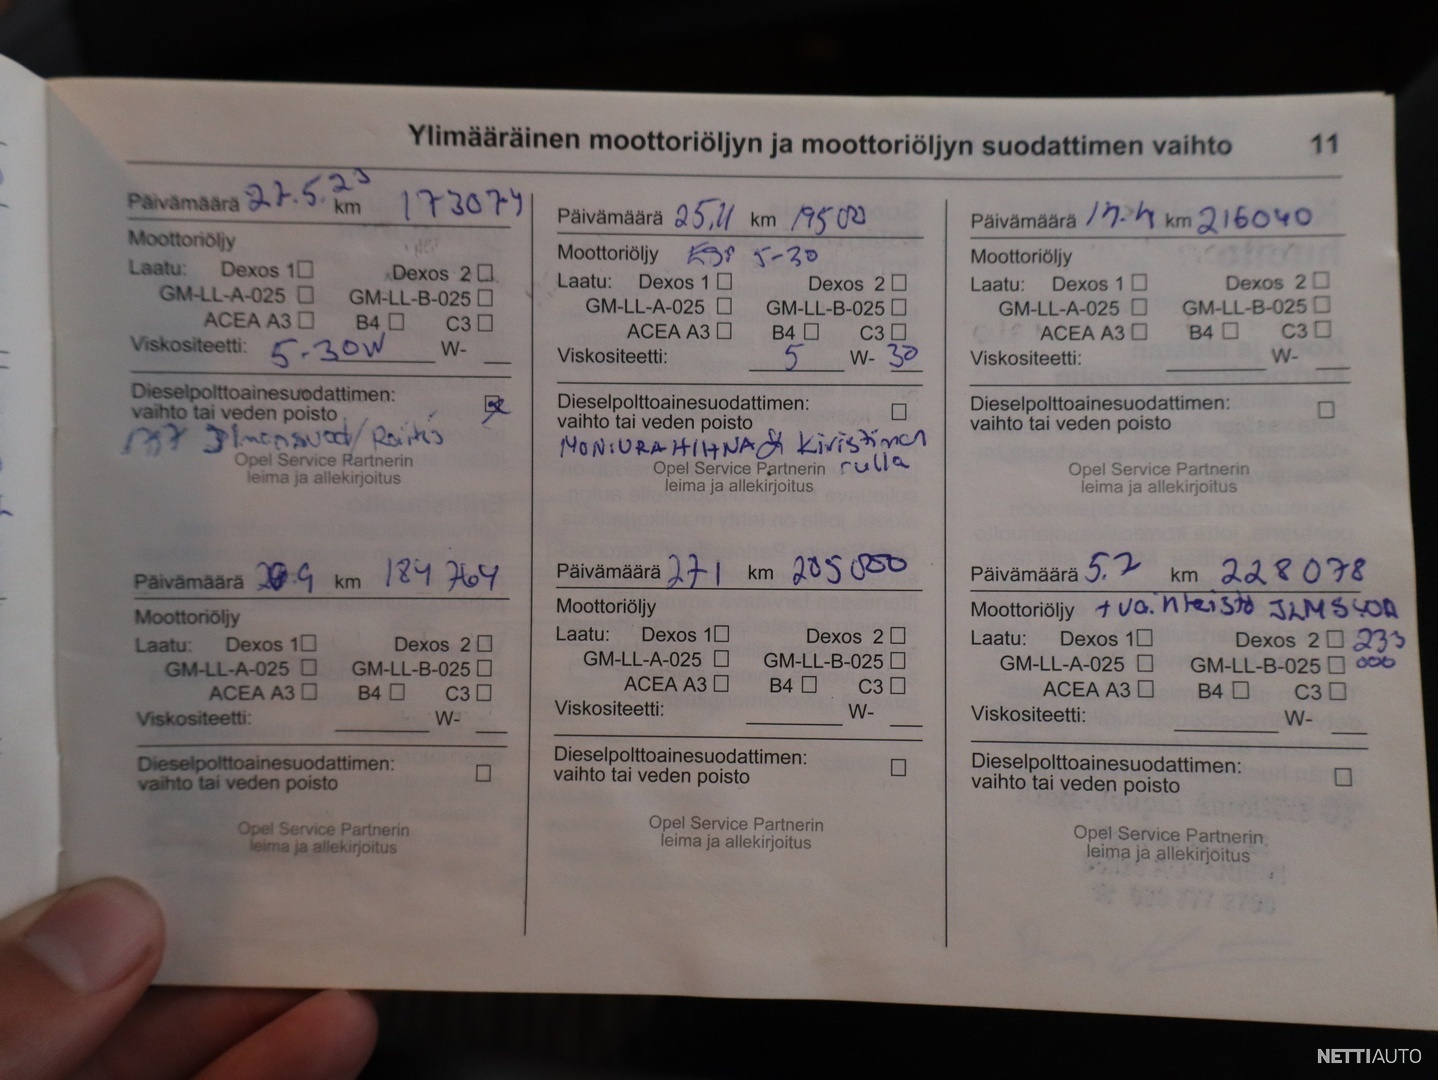 Ylimääräinen moottoriöljyn ja moottoriöljyn suodattimen vaihto 11
Päivämäärä 27.5.23 km 173074
Moottoriöljy
Laatu: Dexos 1 Dexos 2
GM-LL-A-025 GM-LL-B-025
ACEA A3 B4 C3
Viskositeetti: 5-30W W-
Dieselpolttoainesuodattimen:
vaihto tai veden poisto
Ilmansuod/Raitis
Opel Service Partnerin
leima ja allekirjoitus
Päivämäärä 9 km 184 764
Moottoriöljy
Laatu: Dexos 1 Dexos 2
GM-LL-A-025 GM-LL-B-025
ACEA A3 B4 C3
Viskositeetti: W-
Dieselpolttoainesuodattimen:
vaihto tai veden poisto
Opel Service Partnerin
leima ja allekirjoitus
Päivämäärä 25,11 km 195000
Moottoriöljy 5-30
Laatu: Dexos 1 Dexos 2
GM-LL-A-025 GM-LL-B-025
ACEA A3 B4 C3
Viskositeetti: 5 W- 30
Dieselpolttoainesuodattimen:
vaihto tai veden poisto
MONIURAHIHNA & kiristimen
rulla
Opel Service Partnerin
leima ja allekirjoitus
Päivämäärä 271 km 205000
Moottoriöljy
Laatu: Dexos 1 Dexos 2
GM-LL-A-025 GM-LL-B-025
ACEA A3 B4 C3
Viskositeetti: W-
Dieselpolttoainesuodattimen:
vaihto tai veden poisto
Opel Service Partnerin
leima ja allekirjoitus
Päivämäärä km 216040
Moottoriöljy
Laatu: Dexos 1 Dexos 2
GM-LL-A-025 GM-LL-B-025
ACEA A3 B4 C3
Viskositeetti: W-
Dieselpolttoainesuodattimen:
vaihto tai veden poisto
Opel Service Partnerin
leima ja allekirjoitus
Päivämäärä 5.2 km 228078
Moottoriöljy + vaihteisto
Laatu: Dexos 1 Dexos 2 233
GM-LL-A-025 GM-LL-B-025 000
ACEA A3 B4 C3
Viskositeetti: W-
Dieselpolttoainesuodattimen:
vaihto tai veden poisto
Opel Service Partnerin
leima ja allekirjoitus
NETTIAUTO